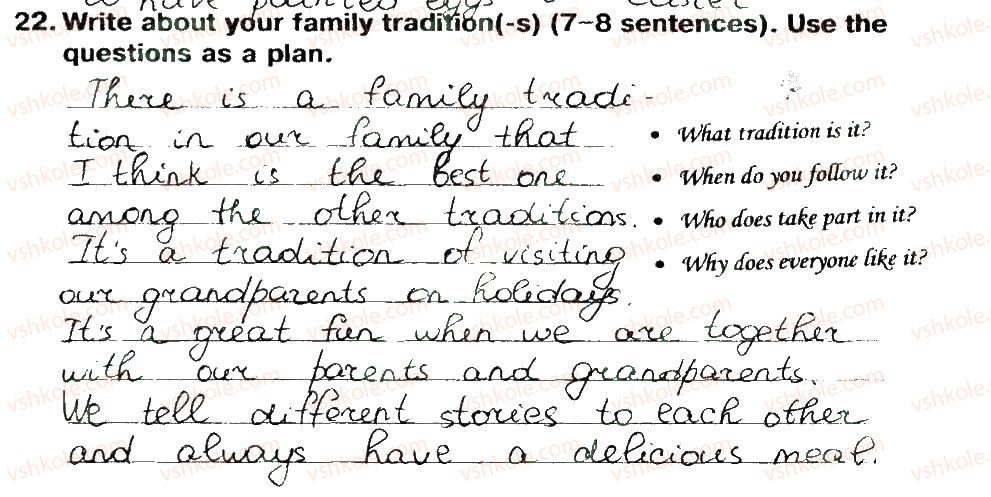 to have painted eggs
22. Write about your family tradition(-s) (7–8 sentences). Use the
questions as a plan.
There is a family tradi-
tion in our family that
I think is the best one
among the other traditions.
It's a tradition of visiting
our grandparents on holidays.
It's a great fun when we are together
with our parents and grandparents.
We tell different stories to each other
and always have a delicious meal.
• What tradition is it?
• When do you follow it?
• Who does take part in it?
• Why does everyone like it?
vshkole.com